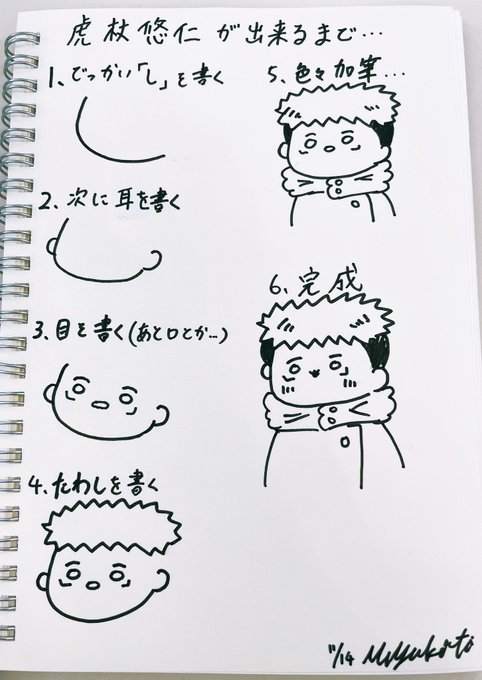 虎杖悠仁が出来るまで…
1、でっかい「し」を書く
2、次に耳を書く
3、目を書く(あと口とか…)
4、たわしを書く
5、色々加筆…
6、完成
11/14